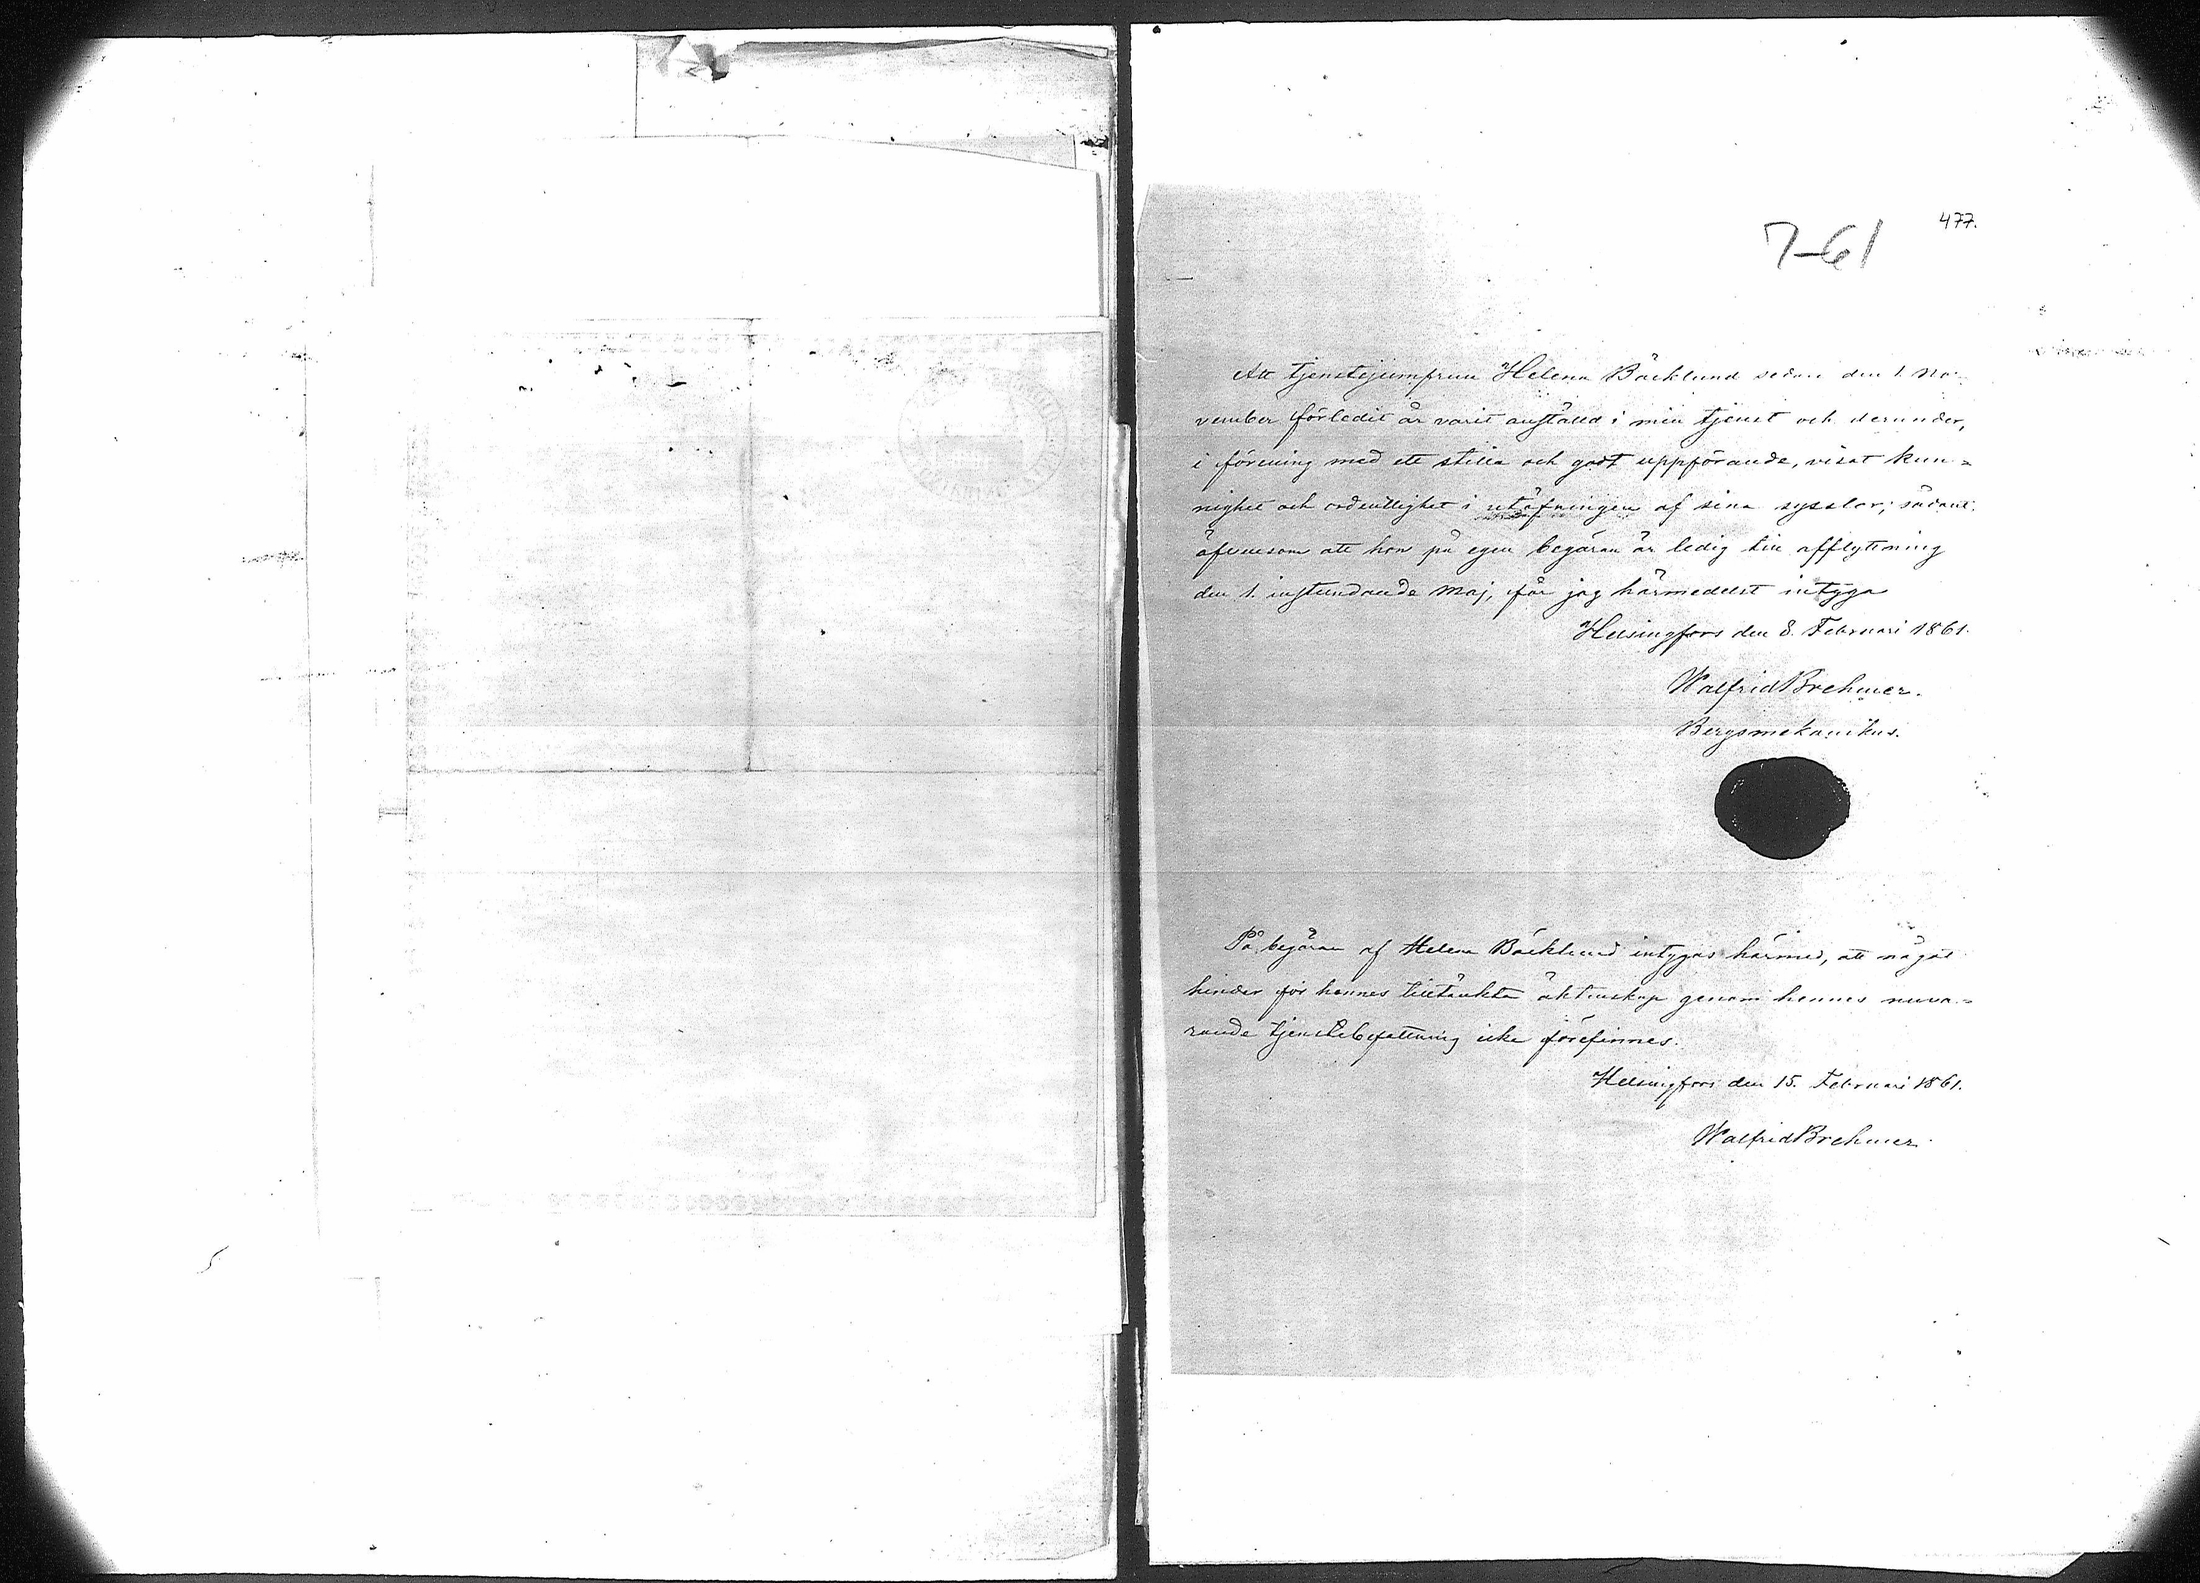 477.
7-61
Att tjenstejumfrun Helena Bäcklund sedan den 1. No-
vember förledit år varit anställd i min tjenst och derunder,
i förening med ett stilla och godt uppförande, visat kun-
nighet och ordentlighet i utöfningen af sina sysslor; sådant
äfvensom att hon på egen begäran är ledig till afflyttning
den 1. instundande Maj, får jag härmedelst intyga
Helsingfors den 8. Februari 1861.
Walfrid Brehmer.
Bergsmekanikus.
På begäran af Helena Bäcklund intygas härmed, att något
hinder för hennes tilltänkta äktenskap genom hennes nuva-
rande tjenstebefattning icke förefinnes.
Helsingfors den 15. Februari 1861.
Walfrid Brehmer